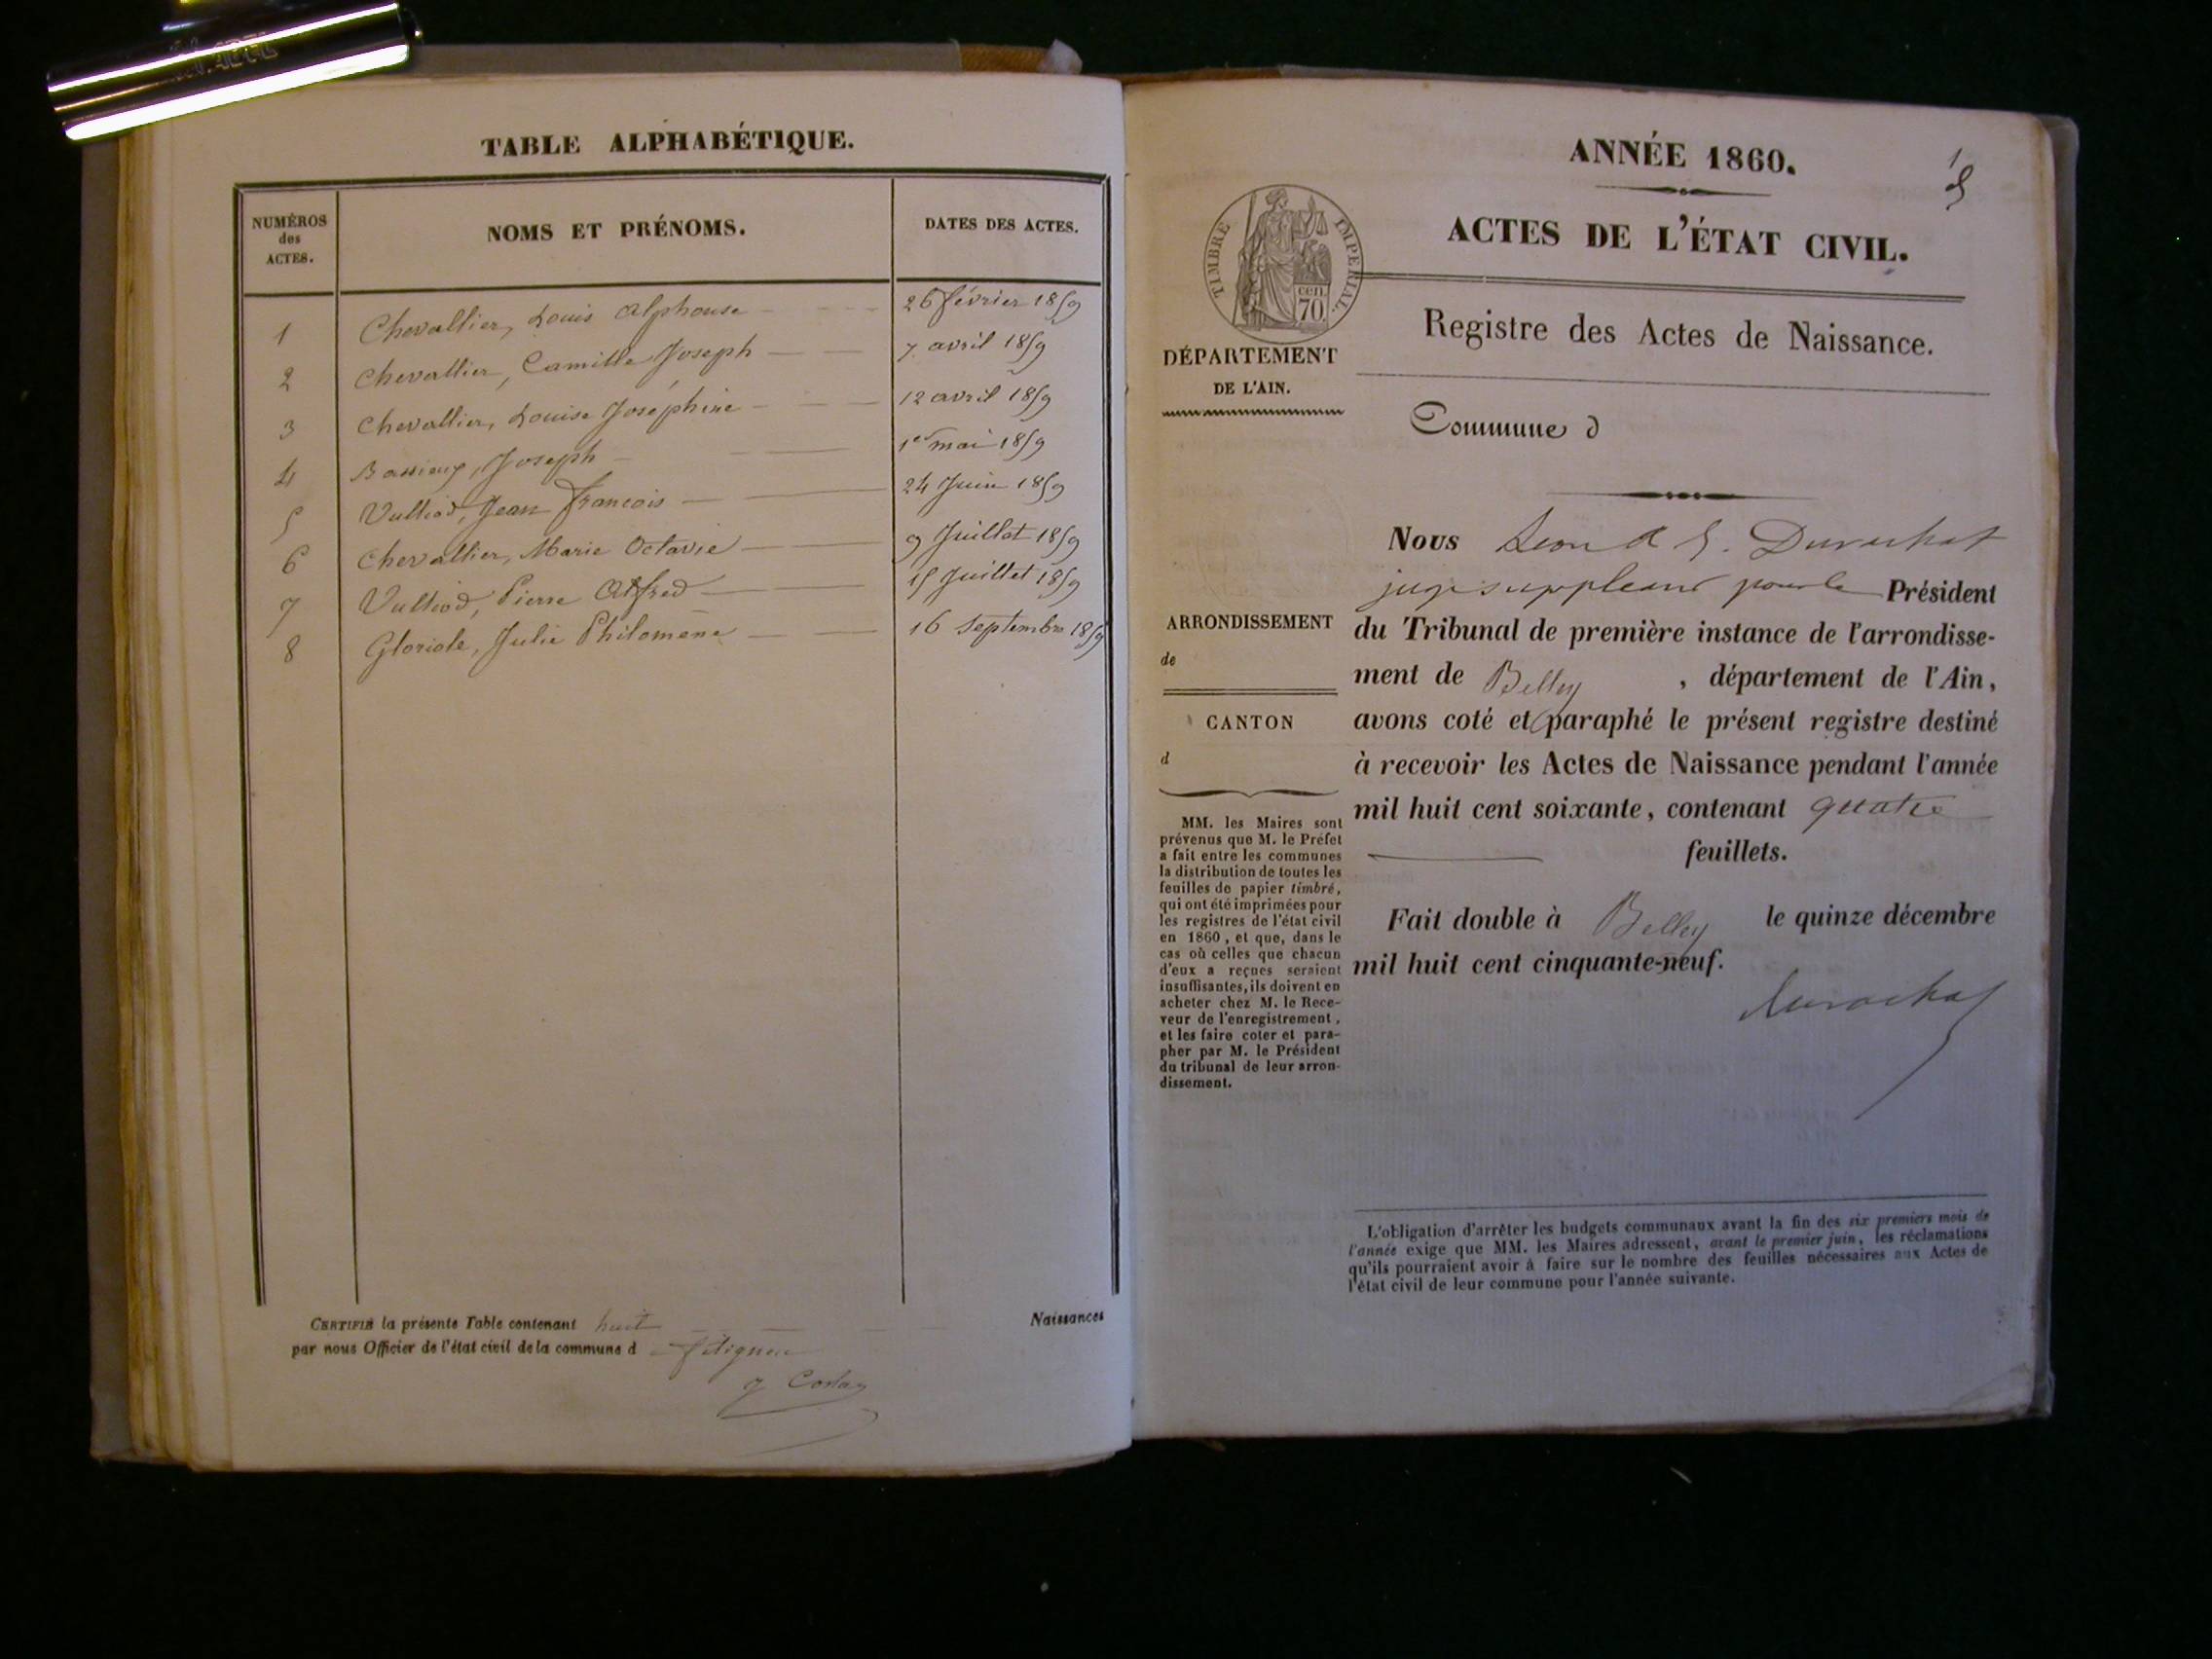 TABLE ALPHABÉTIQUE.
NUMÉROS
des
ACTES.
NOMS ET PRÉNOMS.
DATES DES ACTES.
1 Chevallier, Louis Alphonse 26 février 1859
2 Chevallier, Camille Joseph 7 avril 1859
3 Chevallier, Louise Joséphine 12 avril 1859
4 Joseph 1er mai 1859
5 Vulliod, Jean François 24 Juin 1859
6 Chevallier, Marie Octavie 9 Juillet 1859
7 Vulliod, Pierre Alfred 15 Juillet 1859
8 Gloriole, Julie Philomène 16 Septembre 1859
CERTIFIÉ la présente Table contenant huit Naissances
par nous Officier de l'état civil de la commune d
ANNÉE 1860.
ACTES DE L'ÉTAT CIVIL.
TIMBRE IMPERIAL.
cen.
70.
Registre des Actes de Naissance.
DÉPARTEMENT
DE L'AIN.
Commune d
Nous Durochat
juge suppléant pour le Président
ARRONDISSEMENT
de
du Tribunal de première instance de l'arrondisse-
ment de Belley , département de l'Ain,
CANTON
d
avons coté et paraphé le présent registre destiné
à recevoir les Actes de Naissance pendant l'année
mil huit cent soixante, contenant quatre
feuillets.
MM. les Maires sont
prévenus que M. le Préfet
a fait entre les communes
la distribution de toutes les
feuilles de papier timbré,
qui ont été imprimées pour
les registres de l'état civil
en 1860, et que, dans le
cas où celles que chacun
d'eux a reçues seraient
insuffisantes, ils doivent en
acheter chez M. le Rece-
veur de l'enregistrement,
et les faire coter et para-
pher par M. le Président
du tribunal de leur arron-
dissement.
Fait double à Belley le quinze décembre
mil huit cent cinquante-neuf.
Durochat
L'obligation d'arrêter les budgets communaux avant la fin des six premiers mois de
l'année exige que MM. les Maires adressent, avant le premier juin, les réclamations
qu'ils pourraient avoir à faire sur le nombre des feuilles nécessaires aux Actes de
l'état civil de leur commune pour l'année suivante.